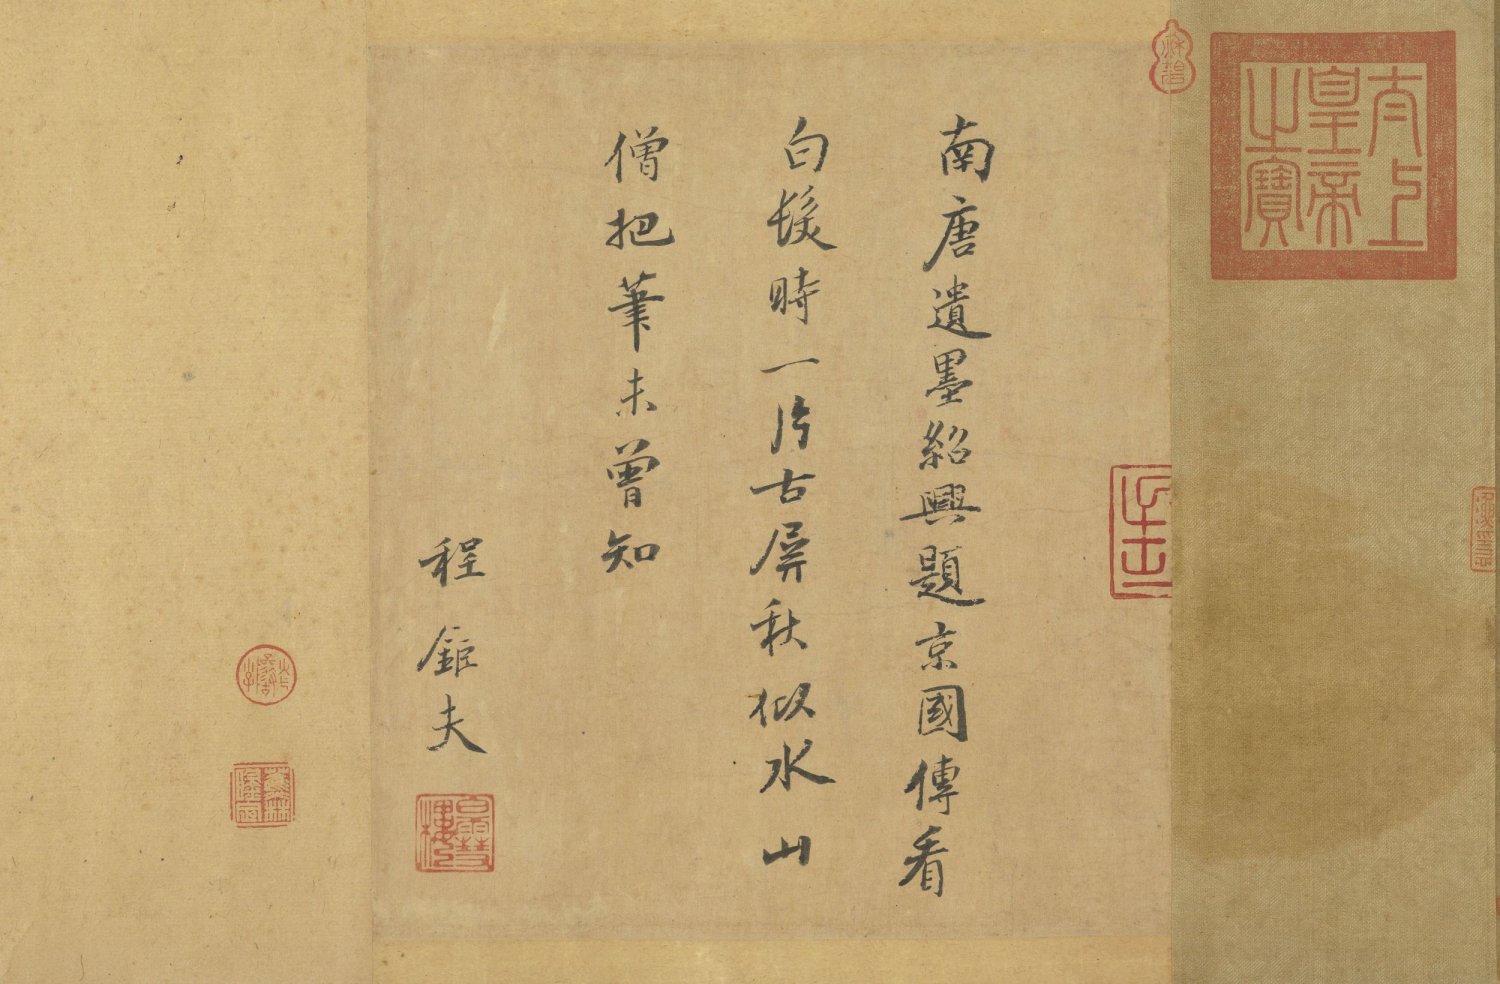 太上
皇帝
之寶
南唐遺墨紹興題京國傳看
白髮時一片古屏秋似水山
僧把筆未曾知
程鉅夫